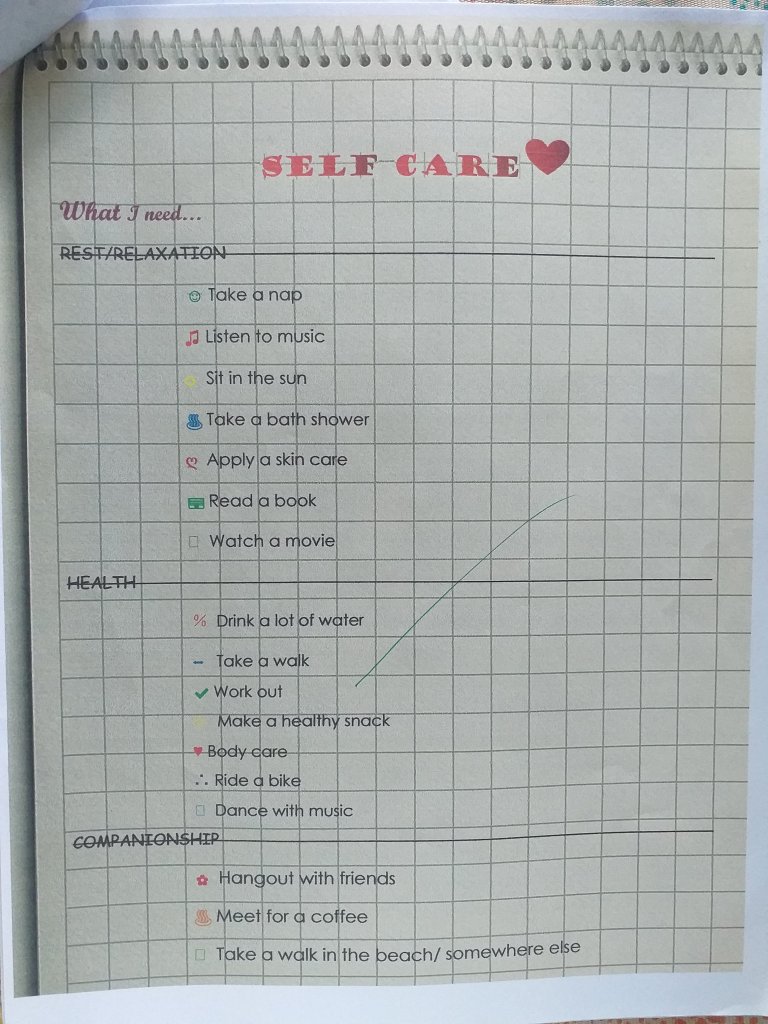 SELF CARE
What I need...
REST/RELAXATION
Take a nap
Listen to music
Sit in the sun
Take a bath shower
Apply a skin care
Read a book
Watch a movie
HEALTH
% Drink a lot of water
Take a walk
Work out
Make a healthy snack
Body care
Ride a bike
Dance with music
COMPANIONSHIP
Hangout with friends
Meet for a coffee
Take a walk in the beach/ somewhere else